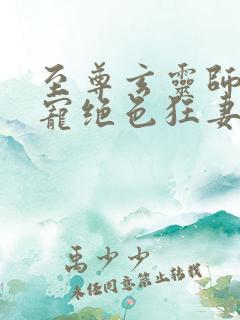 至尊玄靈師
寵絕色狂妻
禹少少
未经同意禁止转载